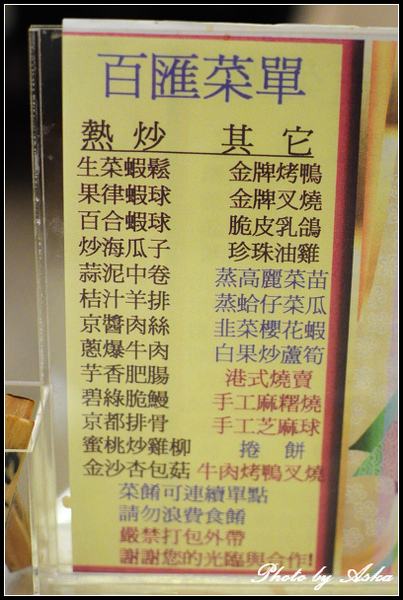 百匯菜單
熱炒 其它
生菜蝦鬆 金牌烤鴨
果律蝦球 金牌叉燒
百合蝦球 脆皮乳鴿
炒海瓜子 珍珠油雞
蒜泥中卷 蒸高麗菜苗
桔汁羊排 蒸蛤仔菜瓜
京醬肉絲 韭菜櫻花蝦
蔥爆牛肉 白果炒蘆筍
芋香肥腸 港式燒賣
碧綠脆鰻 手工麻糬燒
京都排骨 手工芝麻球
蜜桃炒雞柳 捲餅
金沙杏包菇 牛肉烤鴨叉燒
菜餚可連續單點
請勿浪費食餚
嚴禁打包外帶
謝謝您的光臨與合作!
Photo by Aska